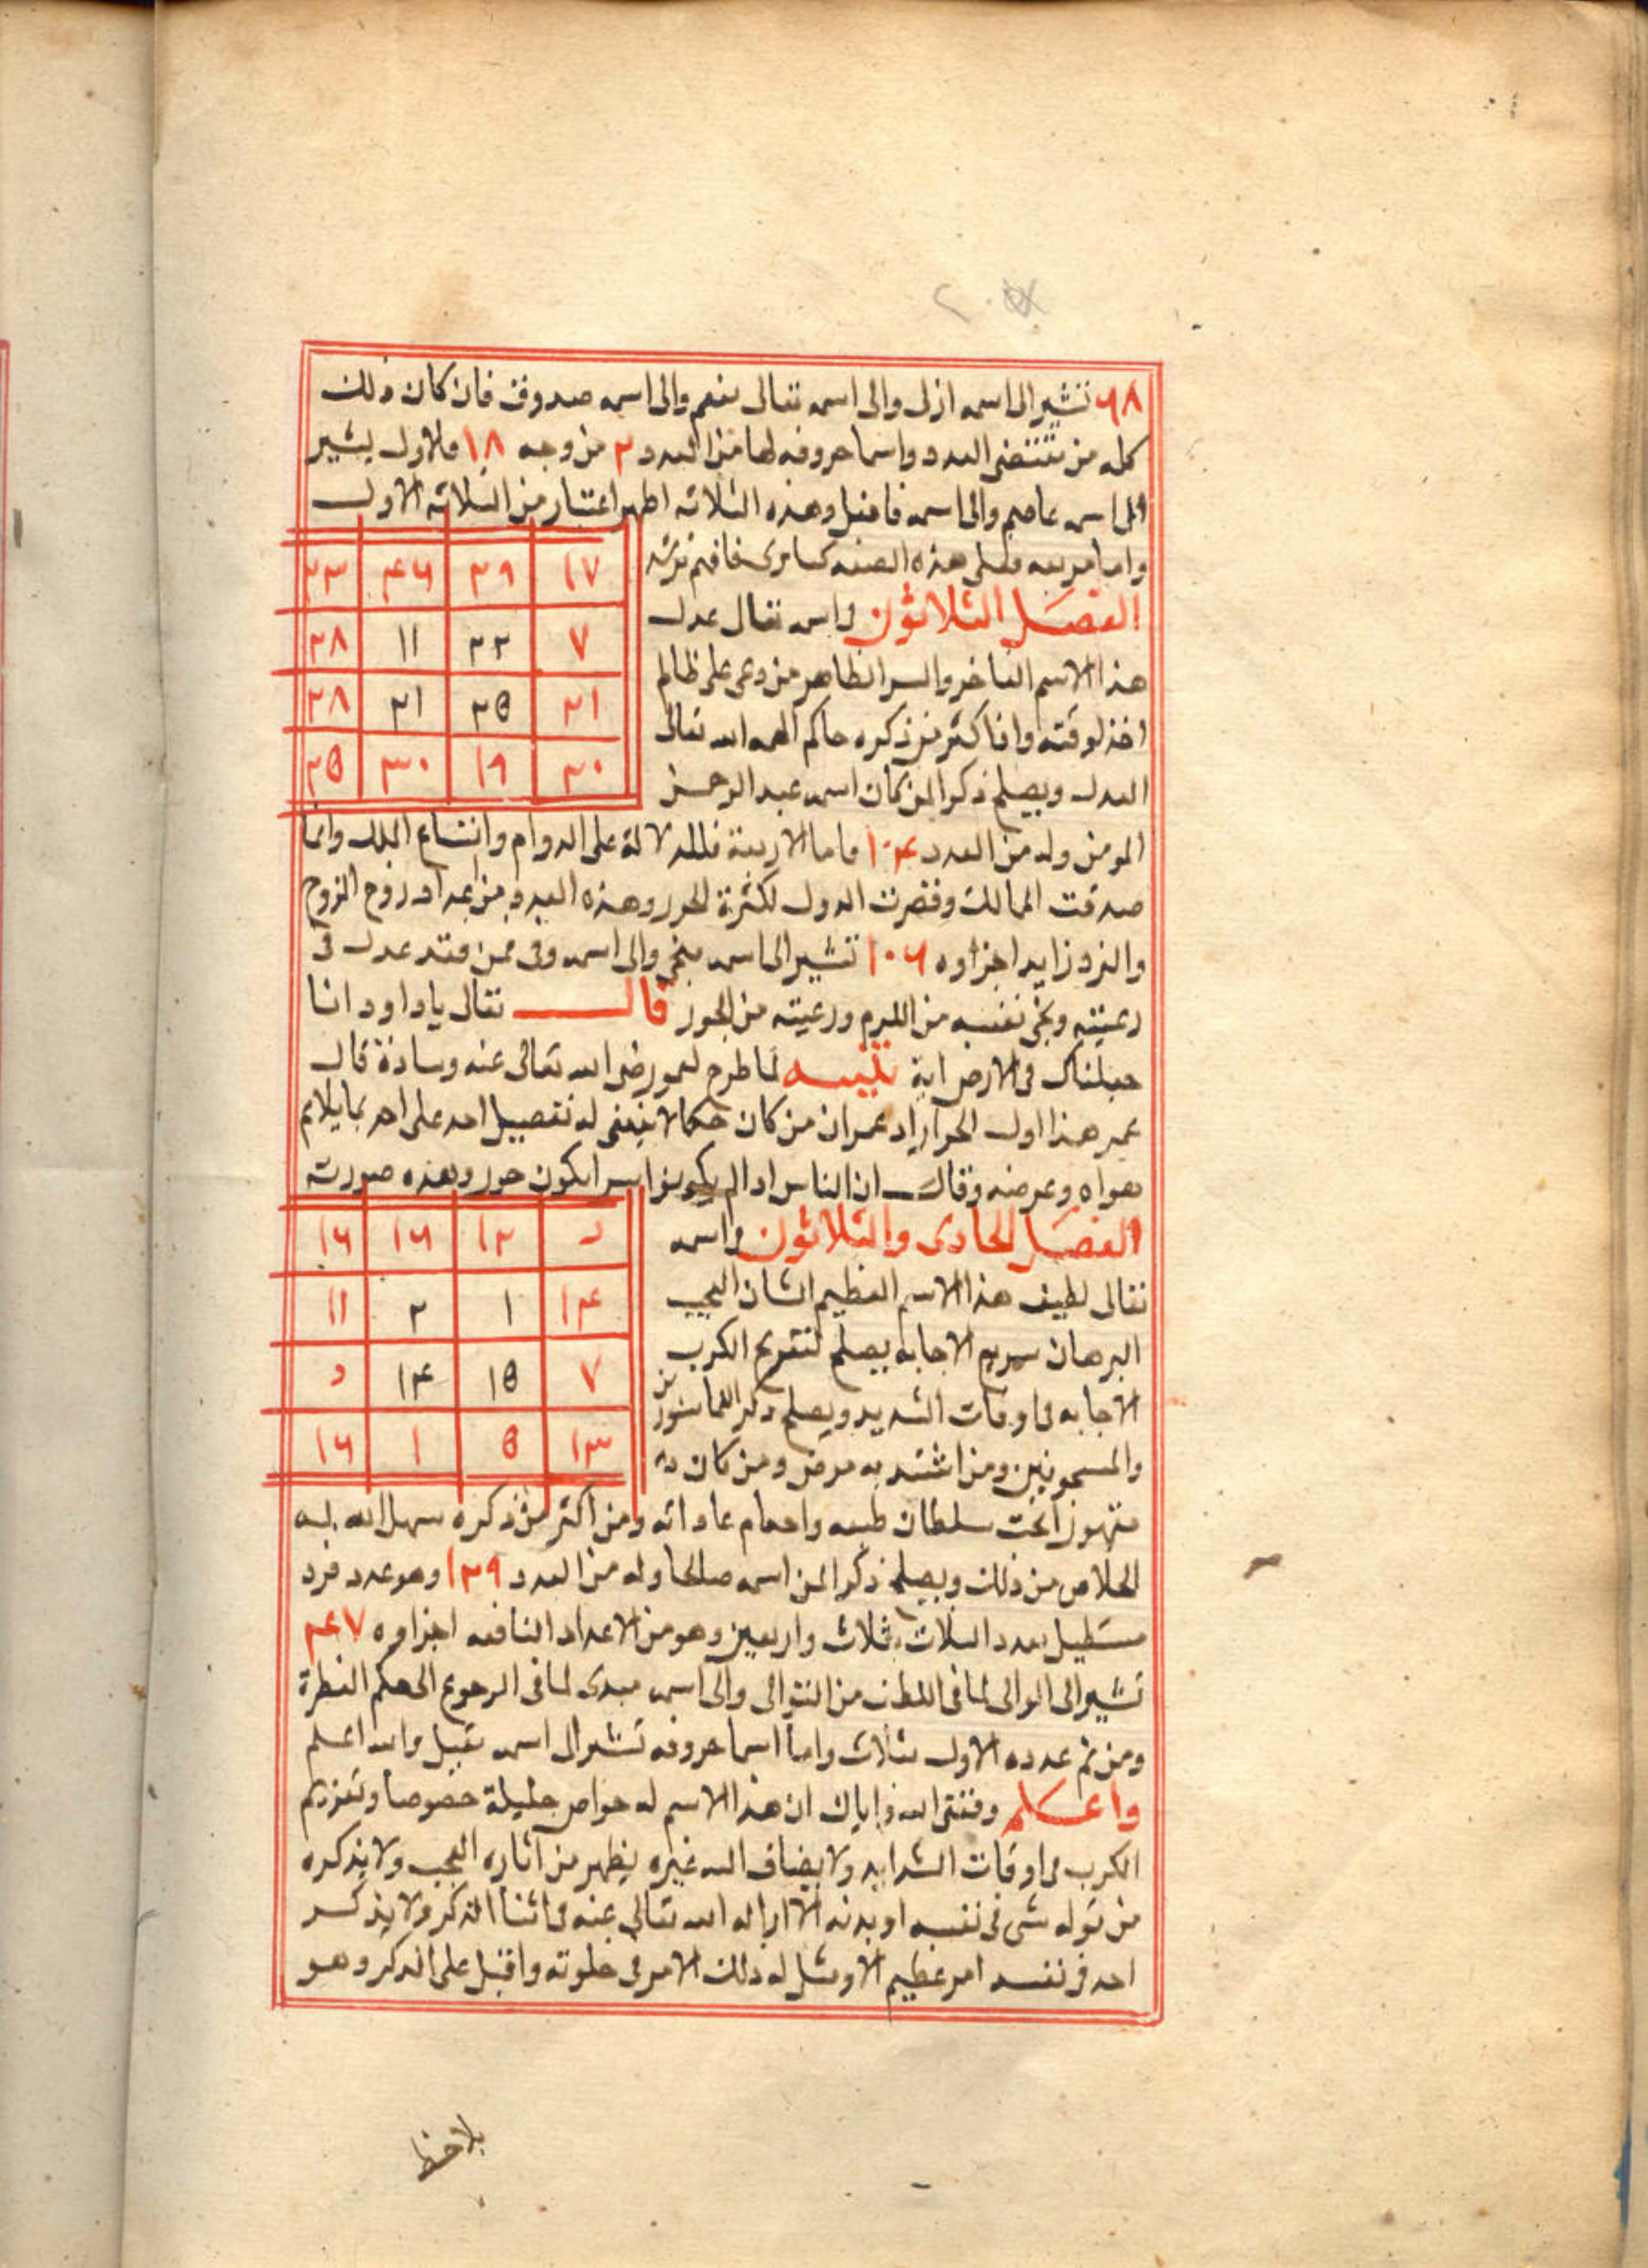 ٦٨ تشير الى اسمه ازلى والى اسمه تعالى منعم والى اسمه صدوق فان كان ذلك
كله من مقتضى العدد واسما حروفه لها من العدد ٣ من وجه ١٨ فالاول يشير
الى اسمه عاصم والى اسمه فاضل وهذه الثلاثه اظهر اعتبار من الثلاثه الاول
واما مربعه فعلى هذه الصفه كما ترى فافهم ترشد
١٧ ٢٩ ٤٦ ٢٣
٧ ٢٢ ١١ ٢٨
٢١ ٢٥ ٢١ ٢٨
٢٠ ١٩ ٣٠ ٢٥
الفصل الثلاثون واسمه تعالى عدل
هذا الاسم الفاخر والسر الظاهر من دعى على ظالم
اخذ لوقته واذا كثر من ذكره حاكم الهمه الله تعالى
العدل ويصلح ذكرا لمن كان اسمه عبد الرحمن
المومن وله من العدد ١٠٤ فاما الاربعة فللدلالة على الدوام واتساع الملك وانما
صدقت الممالك وقصرت الدول لكثرة الجور وهذه العدد من اعداد زوج الزوج
والفرد زايد اجزاوه ١٠٦ تشير الى اسمه منجى والى اسمه وفى فمن فقد عدل فى
رعيته ونجى نفسه من اللوم ورعيته من الجور قال تعالى ياداود انا
جعلناك فى الارض اية تنبيه لما طرح لعمر رضى الله تعالى عنه وسادة قال
عمر هذا اول الجور اراد عمر ان من كان حكما لا ينبغى له تفصيل احد على احد بما يلايم
هواه وغرضه وقال ان الناس اذا لم يكونوا سوا يكون جور وهذه صورته
الفصل الحادى والثلاثون واسمه
د ١٢ ١٦ ١٦
١٤ ١ ٢ ١١
٧ ١٥ ١٤ د
١٣ ٥ ١ ١٦
تعالى لطيف هذا الاسم العظيم الشان العجيب
البرهان سريع الاجابه يصلح لتفريج الكرب
الاجابه فى اوقات الشديد ويصلح ذكر
والمسجونين ومن اشتد به مرض ومن كان
مقهورا تحت سلطان طبعه واحكام عاداته ومن اكثر من ذكره سهل الله له
الخلاص من ذلك ويصلح ذكرا لمن اسمه صالحا وله من العدد ١٢٩ وهو عدد فرد
مستطيل بعدد الثلاث ثلاث واربعين وهو من الاعداد الناقصه اجزاوه ٤٧
تشير الى الوالى لما فى اللطف من التوالى والى اسمه مبدى لما فى الرجوع الى حكم الفطرة
ومن ثم عدده الاول ثلاث واما اسما حروفه تشير الى اسمه مقبل والله اعلم
واعلم وفقنى الله واياك ان هذا الاسم له خواص جليلة خصوصا وتفريج
الكرب فى اوقات الشدايد ولا يضاف اليه غيره يظهر من آثاره العجب ولا يذكره
من توله شى فى نفسه او بدنه الا ازاله الله تعالى عنه فى اثنا الذكر ولا يذكر
احد فى نفسه امر عظيم الا ومثل له ذلك الامر فى خلوته واقبل على الذكر وهو
يلاحظ